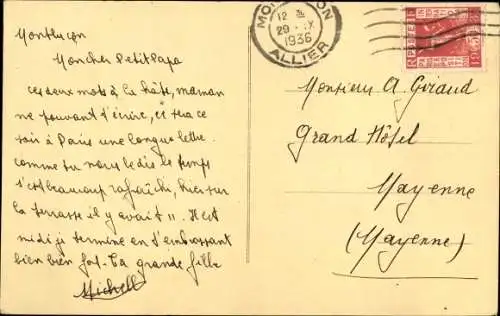 Montluçon
Mon cher Petit Papa
ces deux mots à la hâte, maman
ne pouvant t'écrire, et fera ce
soir à Paris une longue lettre.
comme tu nous le dis le temps
s'est beaucoup rafraîchi, hier sur
la terrasse il y avait 11. Il est
midi je termine en t'embrassant
bien bien fort. Ta grande fille
Michell
12
29 IX
1936
ALLIER
POSTES
Monsieur A Giraud
Grand Hôtel
Mayenne
(Mayenne)